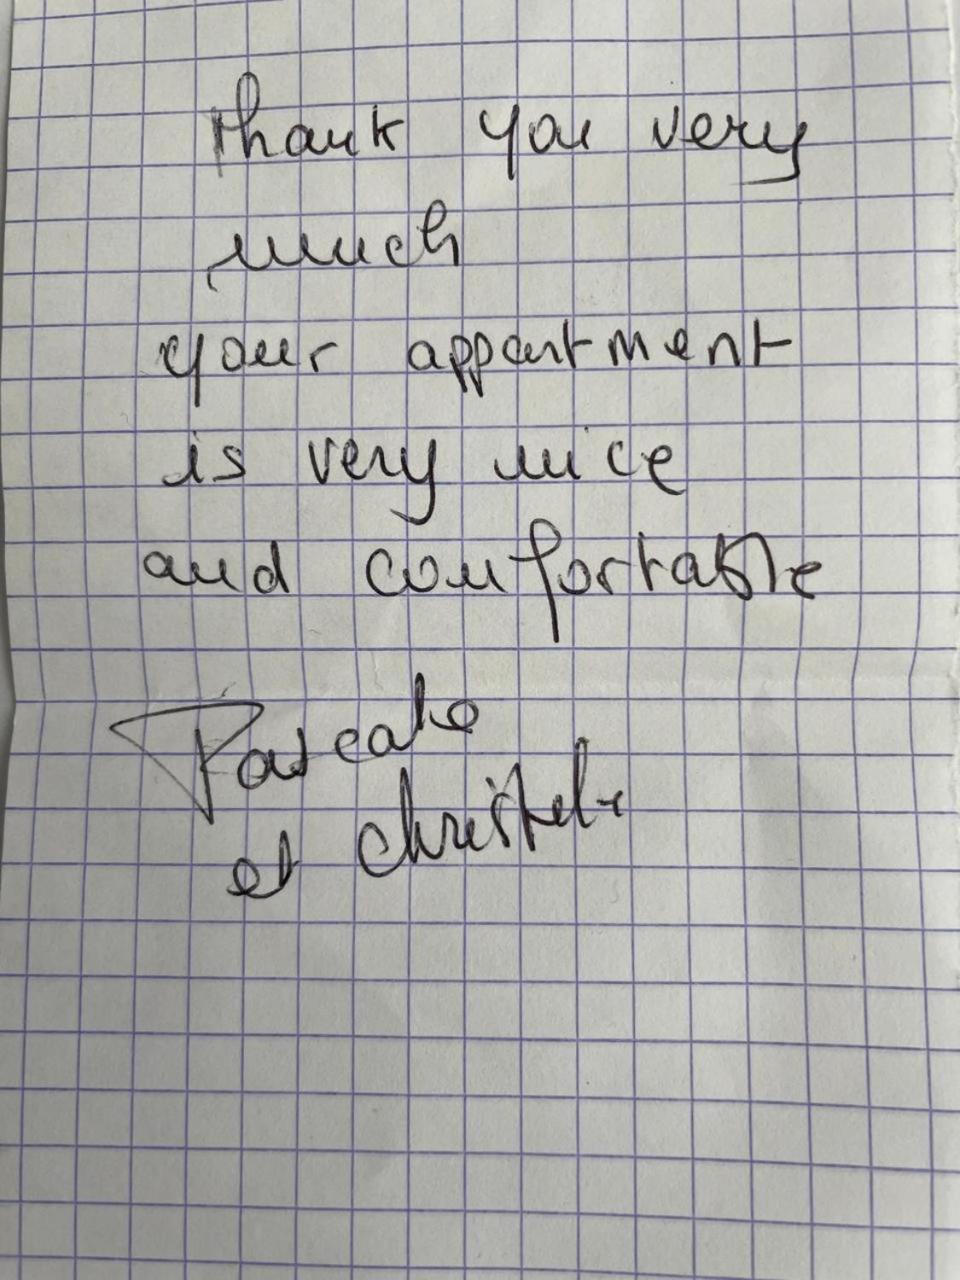 thank you very
much
your appartment
is very nice
and comfortable
Pascale
et christele